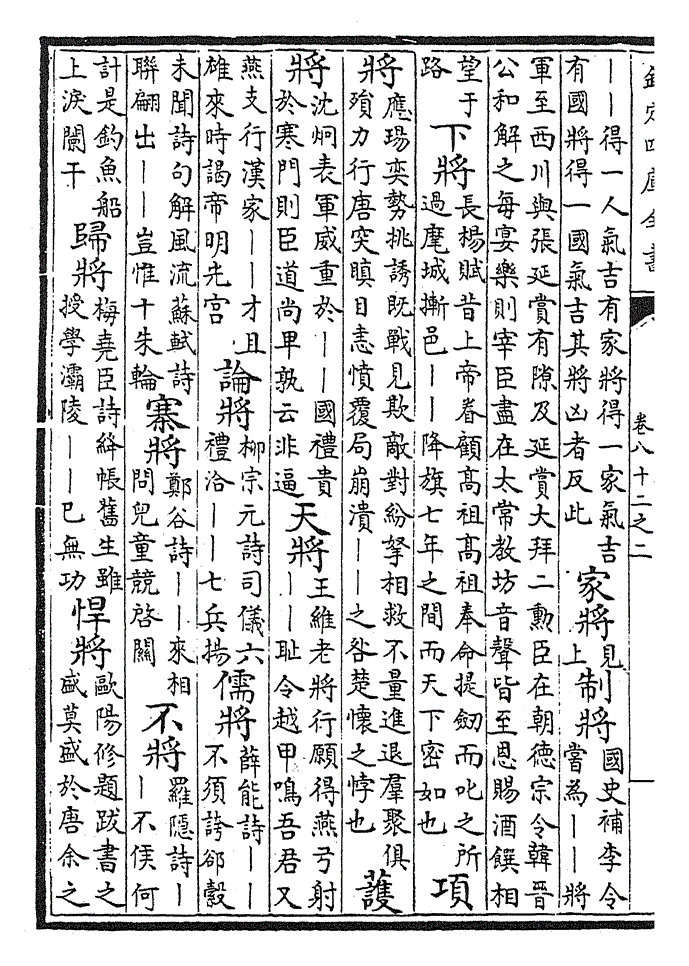 欽定四庫全書
卷八十二之二
——得一人氣吉有家將得一家氣吉
有國將得一國氣吉其將凶者反此
家將
見
上
制將
國史補李令
嘗為——將
軍至西川與張延賞有隙及延賞大拜二勳臣在朝德宗令韓晉
公和解之每宴樂則宰臣盡在太常教坊音聲皆至恩賜酒饌相
望于
路
下將
長楊賦昔上帝眷顧高祖高祖奉命提劒而叱之所
過麾城摲邑——降旗七年之間而天下密如也
項
將
應瑒奕勢挑誘既戰見欺敵對紛拏相救不量進退羣聚俱
殞力行唐突瞋目恚憤覆局崩潰——之咎楚懷之悖也
護
將
沈炯表軍威重於——國禮貴
於寒門則臣道尚卑孰云非逼
天將
王維老將行願得燕弓射
——耻令越甲鳴吾君又
燕支行漢家——才且
雄來時謁帝明光宮
論將
柳宗元詩司儀六
禮洽——七兵揚
儒將
薛能詩——
不須誇郤縠
未聞詩句解風流蘇軾詩
聯翩出——豈惟十朱輪
寨將
鄭谷詩——來相
問兒童競啓關
不將
羅隱詩—
—不侯何
計是釣魚船
上淚闌干
歸將
梅堯臣詩絳帳舊生雖
授學灞陵——已無功
悍將
歐陽修題跋書之
盛莫盛於唐余之